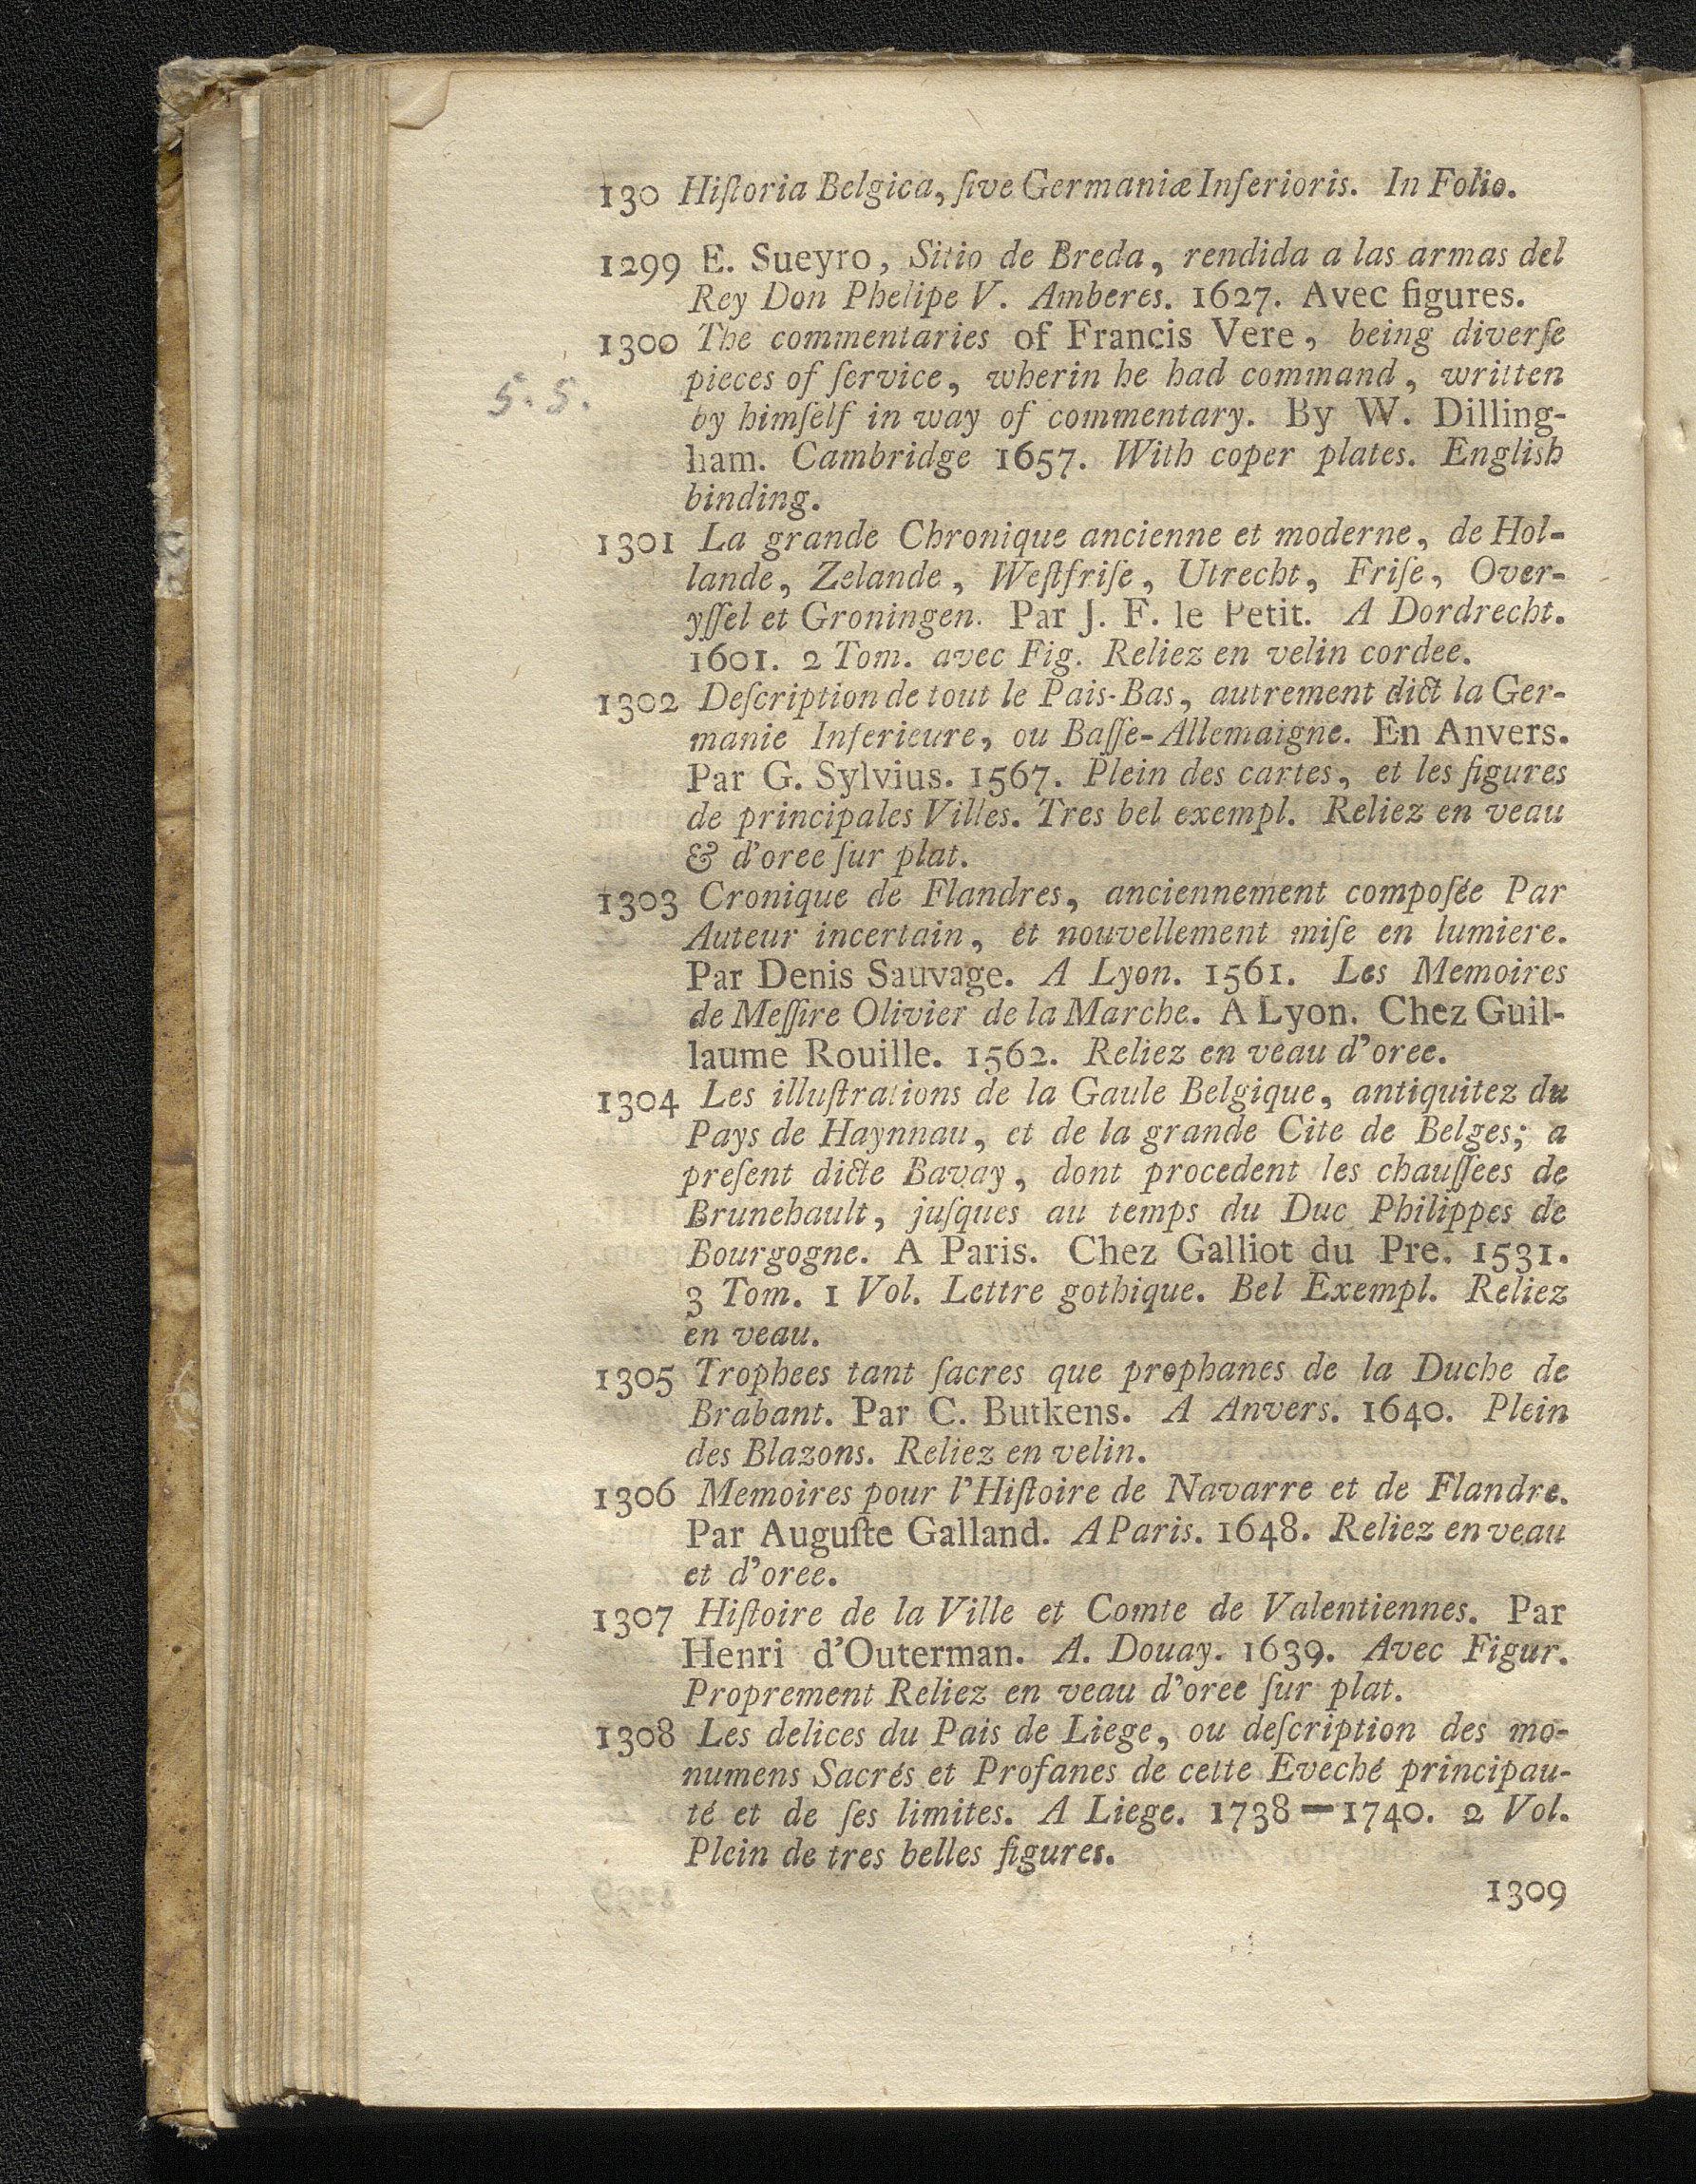 130 Hiſtoria Belgica, ſive Germaniæ Inferioris. In Folio.
1299 E. Sueyro, Sitio de Breda, rendida a las armas del
Rey Don Phelipe V. Amberes. 1627. Avec figures.
1300 The commentaries of Francis Vere, being diverſe
5.5.
pieces of ſervice, wherin he had command, written
by himſelf in way of commentary. By W. Dilling-
ham. Cambridge 1657. With coper plates. English
binding.
1301 La grande Chronique ancienne et moderne, de Hol-
lande, Zelande, Weſtfriſe, Utrecht, Friſe, Over-
yſſel et Groningen. Par J. F. le Petit. A Dordrecht.
1601. 2 Tom. avec Fig. Reliez en velin cordee.
1302 Deſcription de tout le Pais-Bas, autrement dict la Ger-
manie Inferieure, ou Baſſe-Allemaigne. En Anvers.
Par G. Sylvius. 1567. Plein des cartes, et les figures
de principales Villes. Tres bel exempl. Reliez en veau
& d'oree ſur plat.
1303 Cronique de Flandres, anciennement compoſée Par
Auteur incertain, et nouvellement miſe en lumiere.
Par Denis Sauvage. A Lyon. 1561. Les Memoires
de Meſſire Olivier de la Marche. A Lyon. Chez Guil-
laume Rouille. 1562. Reliez en veau d'oree.
1304 Les illuſtrations de la Gaule Belgique, antiquitez du
Pays de Haynnau, et de la grande Cite de Belges; a
preſent dicte Bavay, dont procedent les chauſſees de
Brunehault, juſques au temps du Duc Philippes de
Bourgogne. A Paris. Chez Galliot du Pre. 1531.
3 Tom. 1 Vol. Lettre gothique. Bel Exempl. Reliez
en veau.
1305 Trophees tant ſacres que prophanes de la Duche de
Brabant. Par C. Butkens. A Anvers. 1640. Plein
des Blazons. Reliez en velin.
1306 Memoires pour l'Hiſtoire de Navarre et de Flandre.
Par Auguſte Galland. A Paris. 1648. Reliez en veau
et d'oree.
1307 Hiſtoire de la Ville et Comte de Valentiennes. Par
Henri d'Outerman. A. Douay. 1639. Avec Figur.
Proprement Reliez en veau d'oree ſur plat.
1308 Les delices du Pais de Liege, ou deſcription des mo-
numens Sacrés et Profanes de cette Eveché principau-
té et de ſes limites. A Liege. 1738—1740. 2 Vol.
Plein de tres belles figures.
1309